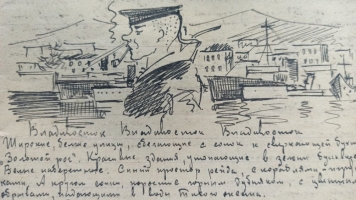 Владивосток Владивосток Владивосток
Широкие, белые улицы, сбегающие с сопок к сверкающей бухте
"Золотой рог". Красивые здания, утопающие в зелени бульвары
Синий простор рейда, с кораблями
А кругом сопки, поросшие горным дубняком, с
обрывами, падающими в воды Тихого океана.